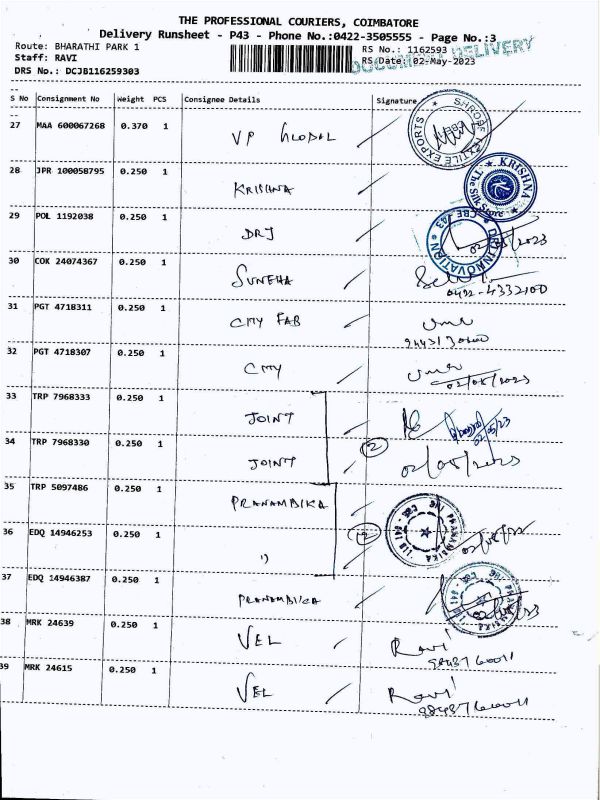 THE PROFESSIONAL COURIERS, COIMBATORE
Delivery Runsheet - P43 - Phone No.:0422-3505555 - Page No.:3
Route: BHARATHI PARK 1 RS No.: 1162593
Staff: RAVI RS Date: 02-May-2023
DRS No.: DCJB116259303 DOCUMENT DELIVERY
S No Consignment No Weight PCS Consignee Details Signature
27 MAA 600067268 0.370 1 VP GLOBAL
TEXTILE EXPORTS
28 JPR 100058795 0.250 1 KRISHNA
KRISHNA The Silk Store
29 POL 1192038 0.250 1 DRJ
INNOVATION
30 COK 24074367 0.250 1 SUNEHA
0422-4332100
31 PGT 4718311 0.250 1 CITY FAB
32 PGT 4718307 0.250 1 CITY
02/05/2023
33 TRP 7968333 0.250 1 JOINT
2
34 TRP 7968330 0.250 1 JOINT 02/05/2023
35 TRP 5097486 0.250 1 PRANAMBIKA
36 EDQ 14946253 0.250 1 〃
PRANAMBIKA
37 EDQ 14946387 0.250 1 PRANAMBIKA
PRANAMBIKA
38 MRK 24639 0.250 1 VEL Ravi
39 MRK 24615 0.250 1 VEL Ravi